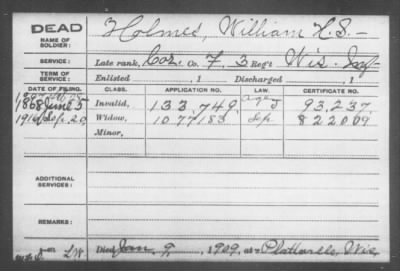 DEAD
NAME OF SOLDIER:
Holmes, William H. S. —
SERVICE:
Late rank, Cor. Co. F, 3 Reg't Wis. Inf.
TERM OF SERVICE:
Enlisted , 1 Discharged , 1
DATE OF FILING. CLASS. APPLICATION NO. LAW. CERTIFICATE NO.
1868 June 5 Invalid, 133,749 93,237
Sep. 20 Widow, 1077183 822009
Minor,
ADDITIONAL SERVICES:
REMARKS:
Died Jan. 9, 1909, at Platteville, Wis.